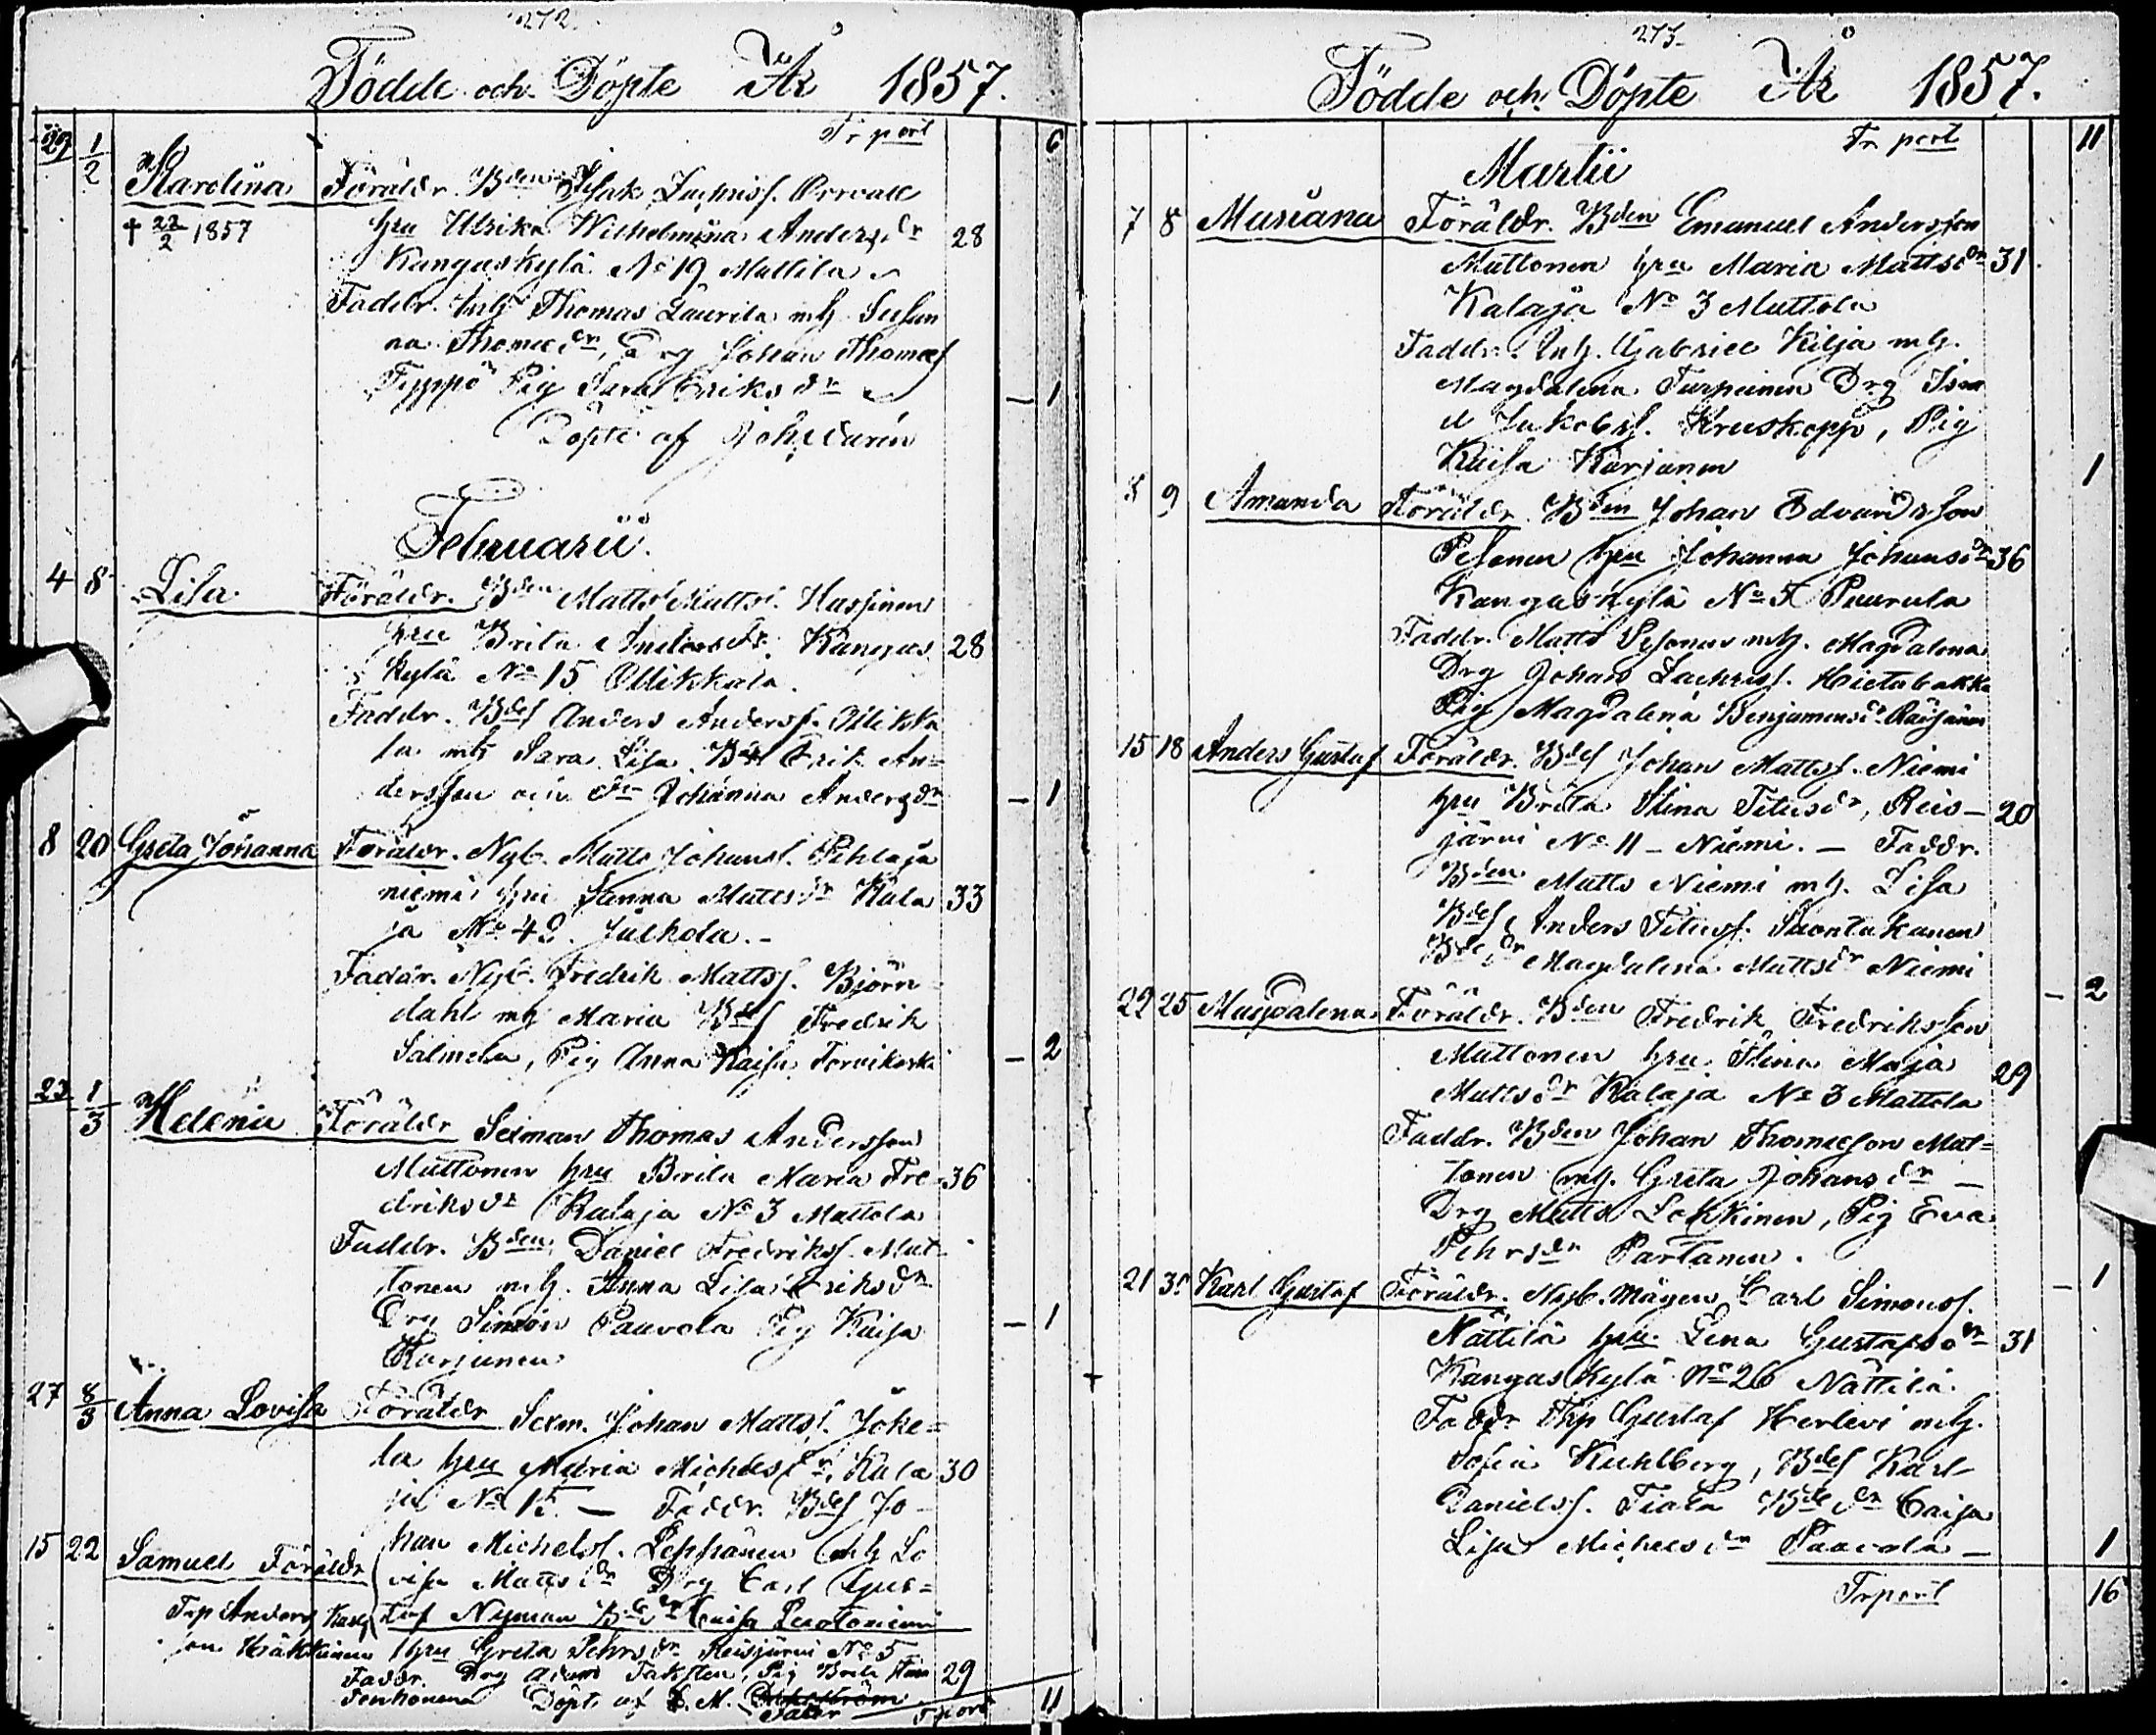 272.
Födde och Döpte År 1857.
Trport 6
29 1/2 Karolina Föräldr. Bden Isak Zachriss. Orrvall
† 22/2 1857 hru Ulrika Wilhelmina Andersdr 28
Kangaskylä No 19 Mattila
Faddr. Inh Thomas Laurila mh Susan
na Thomædr, Drg Johan Thomæs
Typpö Pig Sara Eriksdr — 1
Döpte af
Februarii.
4 8 Lisa Föräldr. Bden Matts Mattss. Hassinen
hru Brita Andersdr. Kangas 28
kylä No 15 Ollikkala.
Faddr. Bdes Anders Anderss. Ollikka
la mh Sara Lisa. Bds Erik An=
dersson och dr Johanna Andersdr — 1
8 20 Greta Johanna Föräldr. Nyb. Matts Johanss. Pihlaja
niemi hru Sanna Mattsdr Kala 33
ja No 42.
Faddr. Nyb. Fredrik Mattss. Björn
dahl mh Maria Bdes Fredrik
Salmela, Pig Anna Kaisa Torvikoski — 2
23 1/3 Helena Föräldr Sexman Thomas Andersson
Muttonen hru Brita Maria Fre 36
driksdr Kalaja No 3 Mattola
Faddr. Bden Daniel Fredrikss. Mut
tonen mh. Anna Lisa Eriksdr
Drg Simon Paavola Pig Kaisa — 1
Karjanen
27 8/3 Anna Lovisa Föräldr Sexm. Johan Mattss. Joke=
la hru Maria Michelsdr, Kala 30
ja No 15. — Faddr. Bdes Jo
han Michelss. Leppänen mh Lo
15 22 Samuel Föräldr visa Mattsdr Drg Carl Gus=
Trp Anders Karls taf Nyman Bdedr Caisa Luotoniemi
son Häkkinen hru Greta Pehrsdr Reisjärvi No 5
Faddr. Drg Adam Taksten, Pig Brita Stina 29
Tenhonen Döpt. af
Trport 11
273.
Födde och Döpte År 1857.
Tr port 11
Martii
7 8 Mariana Föräldr. Bden Emanuel Andersson
Muttonen hru Maria Mattsdr 31
Kalaja No 3 Muttola
Faddr. Inh. Gabriel Kilja mh.
Magdalena Turpeinen Drg Isra
el Jakobss. Kruskopp, Pig
Kaisa Karjanen 1
8 9 Amanda Föräldr. Bden Johan Edvardsson
Pesonen hru Johanna Johansdr 36
Kangaskylä No 5 Puurula
Faddr. Matts Pesonen mh. Magdalena
Drg Johan Zachriss. Hietabakka
Pig Magdalena Benjaminsdr Räisänen
15 18 Anders Gustaf Föräldr. Bdes Johan Mattss. Niemi
hru Brita Stina Titusdr, Reis— 20
järvi No 11 — Niemi. — Faddr.
Bden Matts Niemi mh. Lisa
Bdes Anders Tituss. Saontakanen
Bdedr Magdalena Mattsdr Niemi — 2
22 25 Magdalena Föräldr. Bden Fredrik Fredriksson
Muttonen hru. Stina Maja 29
Mattsdr Kalaja No 3 Mattola
Faddr. Bden Johan Thomæson Mut=
tonen mh. Greta Johansdr —
Drg Matts Lokkinen, Pig Eva
Pehrsdr Partanen. — 1
21 31 Karl Gustaf Föräldr. Nyb. mågen Carl Simonss.
Nättilä hru. Lena Gustafsdr 31
Kangaskylä No 26 Nättilä.
Faddr Trp Gustaf Herlevi mh.
Sofia Kuhlberg, Bdes Karl
Danielss. Tiala Bdedr Caisa
Lisa Michelsdr Paavola — 1
Trport 16